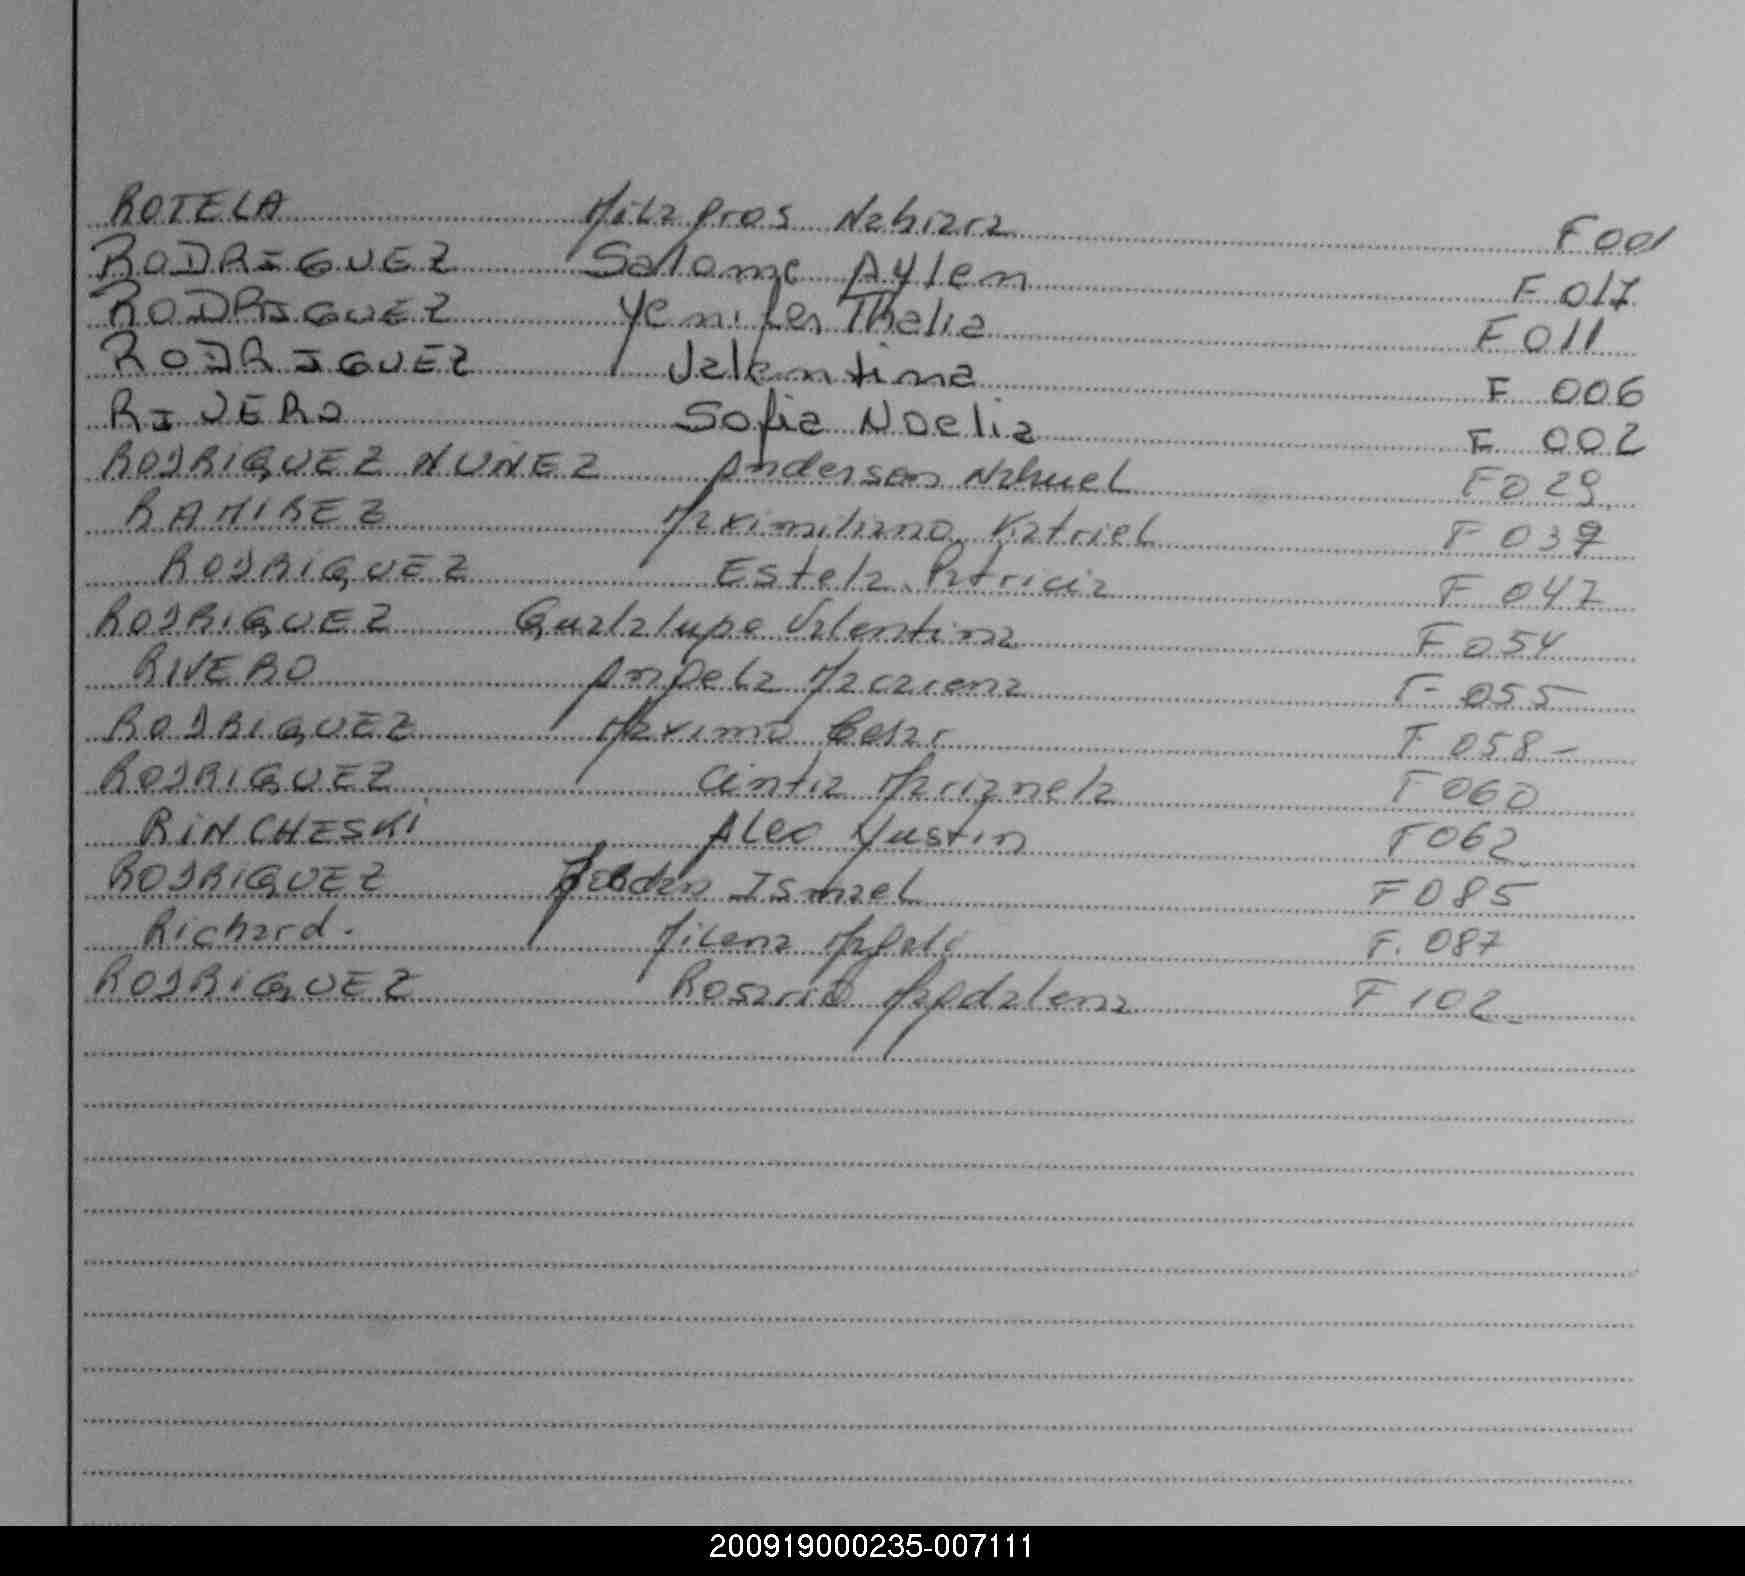 ROTELA Milagros Nahiara F 001
RODRIGUEZ Salome Aylen F 017
RODRIGUEZ Yenifer Thalia F 011
RODRIGUEZ Valentina F 006
RIVERO Sofia Noelia F 002
RODRIGUEZ NUNEZ Anderson Nahuel F 029
RAMIREZ Maximiliano Katriel F 039
RODRIGUEZ Estela Patricia F 047
RODRIGUEZ Guadalupe Valentina F 054
RIVERO Angela Macarena F 055
RODRIGUEZ Maximo Cesar F 058 -
RODRIGUEZ Cintia Marianela F 060
RINCHESKI Aleo Yustin F 062
RODRIGUEZ Ismael F 085
Richard. Milena Magali F. 087
RODRIGUEZ Rosario Magdalena F 102
200919000235-007111